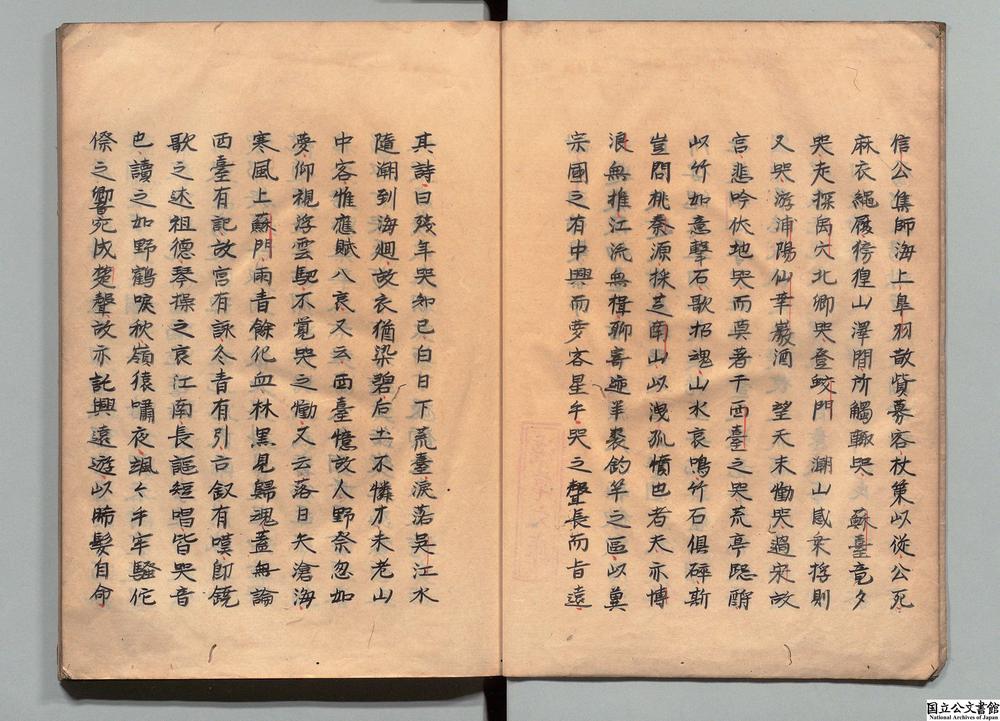 信公集師海上皐羽散貲募容杖策以從公死
麻衣繩履徬徨山澤間所觸輒哭夕蘇臺竟夕
哭走探禹穴北鄉哭登蛟門潮山感乘桴則
又哭游浦陽仙華巖酒望天末慟哭過宋故
宮悲吟伏地哭而莫若于西臺之哭荒亭隠酹
以竹如意擊石歌招魂山水哀鳴竹石俱碎斯
豈問桃秦源採芝南山以洩孤憤也者夫亦博
浪無推江流無楫聊寄迹羊裘釣竿之區以冀
宗國之有中興而夢客星乎哭之聲長而旨遠
其詩曰殘年哭知己白日下荒臺淚落吳江水
隨潮到海廻故衣猶染碧后土不憐才未老山
中客惟應賦八哀又云西臺憶故人野祭忽如
夢仰視浮雲馭不覚哭之慟又云落日失滄海
寒風上蘇門雨青餘化血林黒見歸魂蓋無論
西臺有記故宮有詠冬青有引古釵有嘆即鐃
歌之述祖德琴操之哀江南長謳短唱皆哭音
也讀之如野鶴唳秋嶺猿嘯夜颯々乎牢騷佗
傺之響宛成楚聲故亦託興遠遊以晞髪自命
国立公文書館
National Archives of Japan